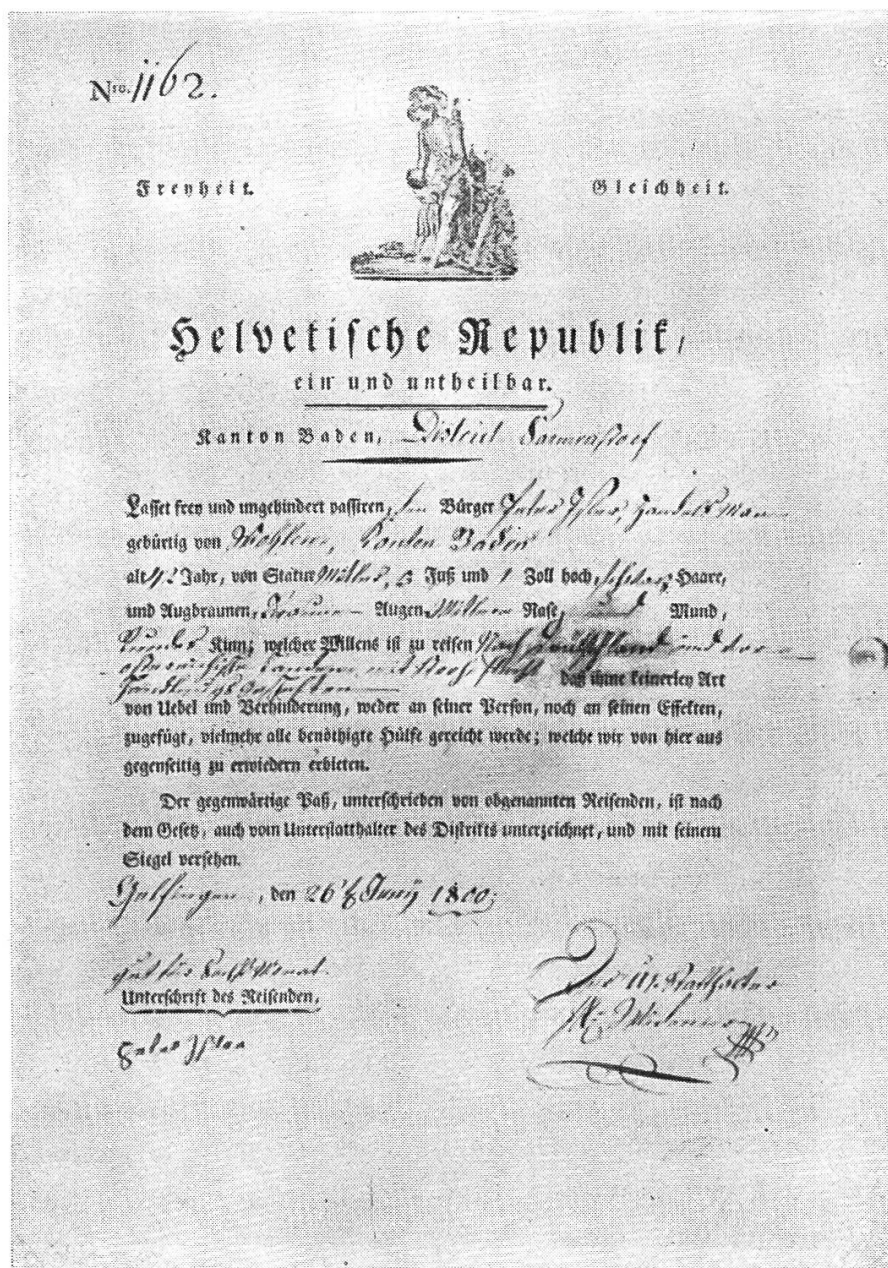 Nro. 1162.
Freyheit. Gleichheit.
Helvetische Republik,
ein und untheilbar.
Kanton Baden, District Sarmenstorf
Lasset frey und ungehindert passiren, den Bürger Peter Isler, Handelsman
gebürtig von Wohlen, Canton Baden
alt 42 Jahr, von Statur Mitler, 5 Fuß und 1 Zoll hoch, Haare,
und Augbraunen, braune Augen Mitlere Nase, Mund,
Rundes Kinn; welcher Willens ist zu reisen Nach Deütschland und
Landen mit daß ihme keinerley Art
Handlungs
von Uebel und Verhinderung, weder an seiner Person, noch an seinen Effekten,
zugefügt, vielmehr alle benöthigte Hülfe gereicht werde; welche wir von hier aus
gegenseitig zu erwiedern erbieten.
Der gegenwärtige Paß, unterschrieben von obgenannten Reisenden, ist nach
dem Gesetz, auch vom Unterstatthalter des Distrikts unterzeichnet, und mit seinem
Siegel versehen.
den 26t Juny 1800.
gut für Monat.
Unterschrift des Reisenden,
Peter Isler
Der Ur. Statthalter